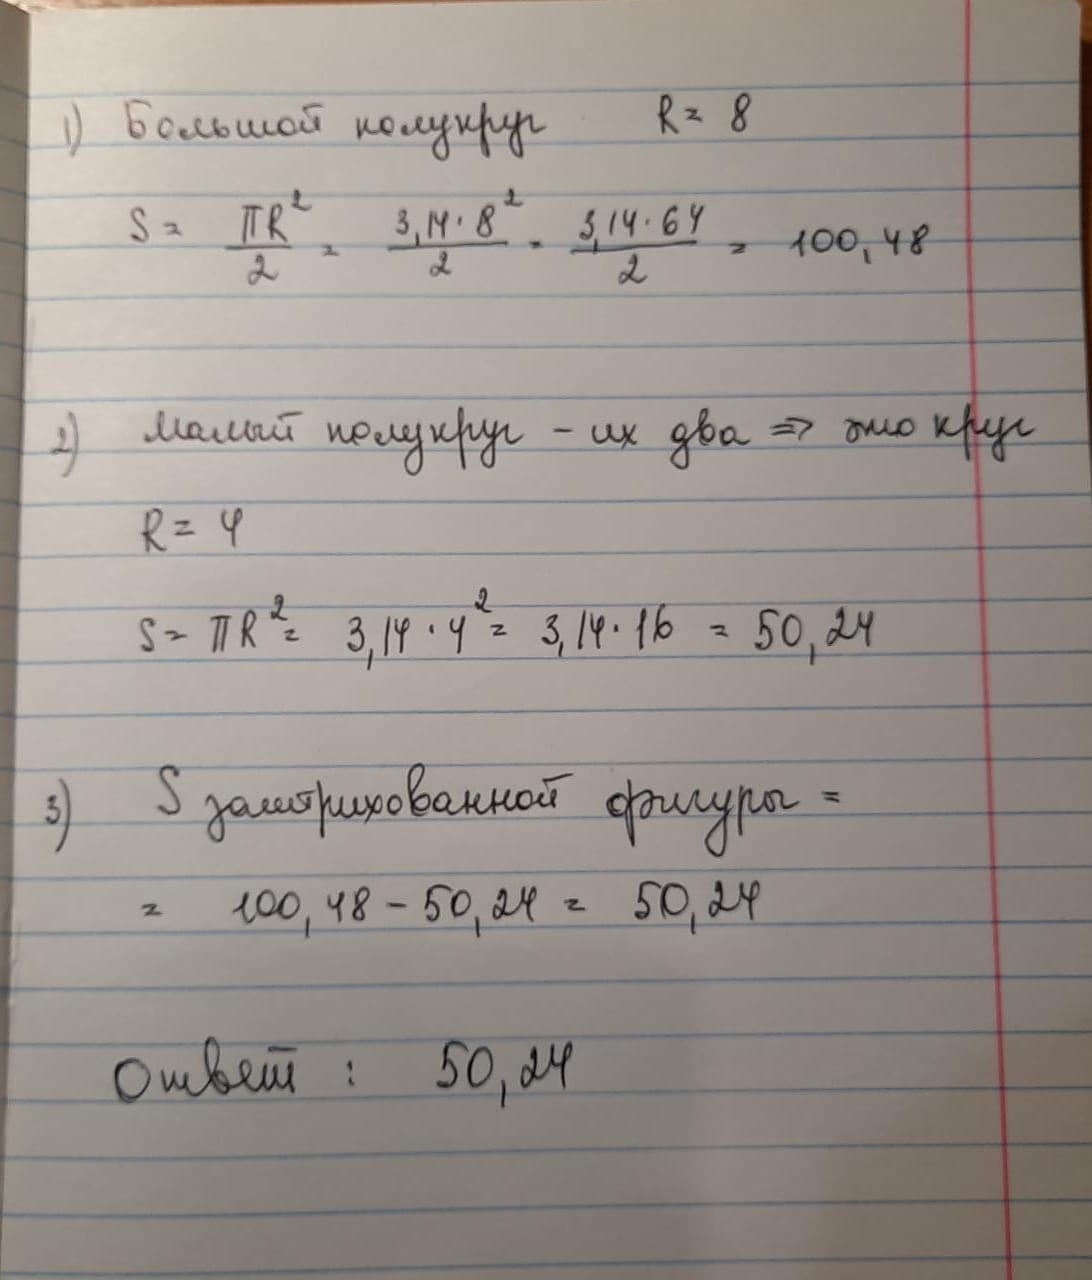 1) Большой полукруг R = 8
S = πR²/2 = 3,14·8²/2 = 3,14·64/2 = 100,48
2) Малый полукруг – их два ⇒ это круг
R = 4
S = πR² = 3,14·4² = 3,14·16 = 50,24
3) S заштрихованной фигуры =
= 100,48 – 50,24 = 50,24
Ответ : 50,24